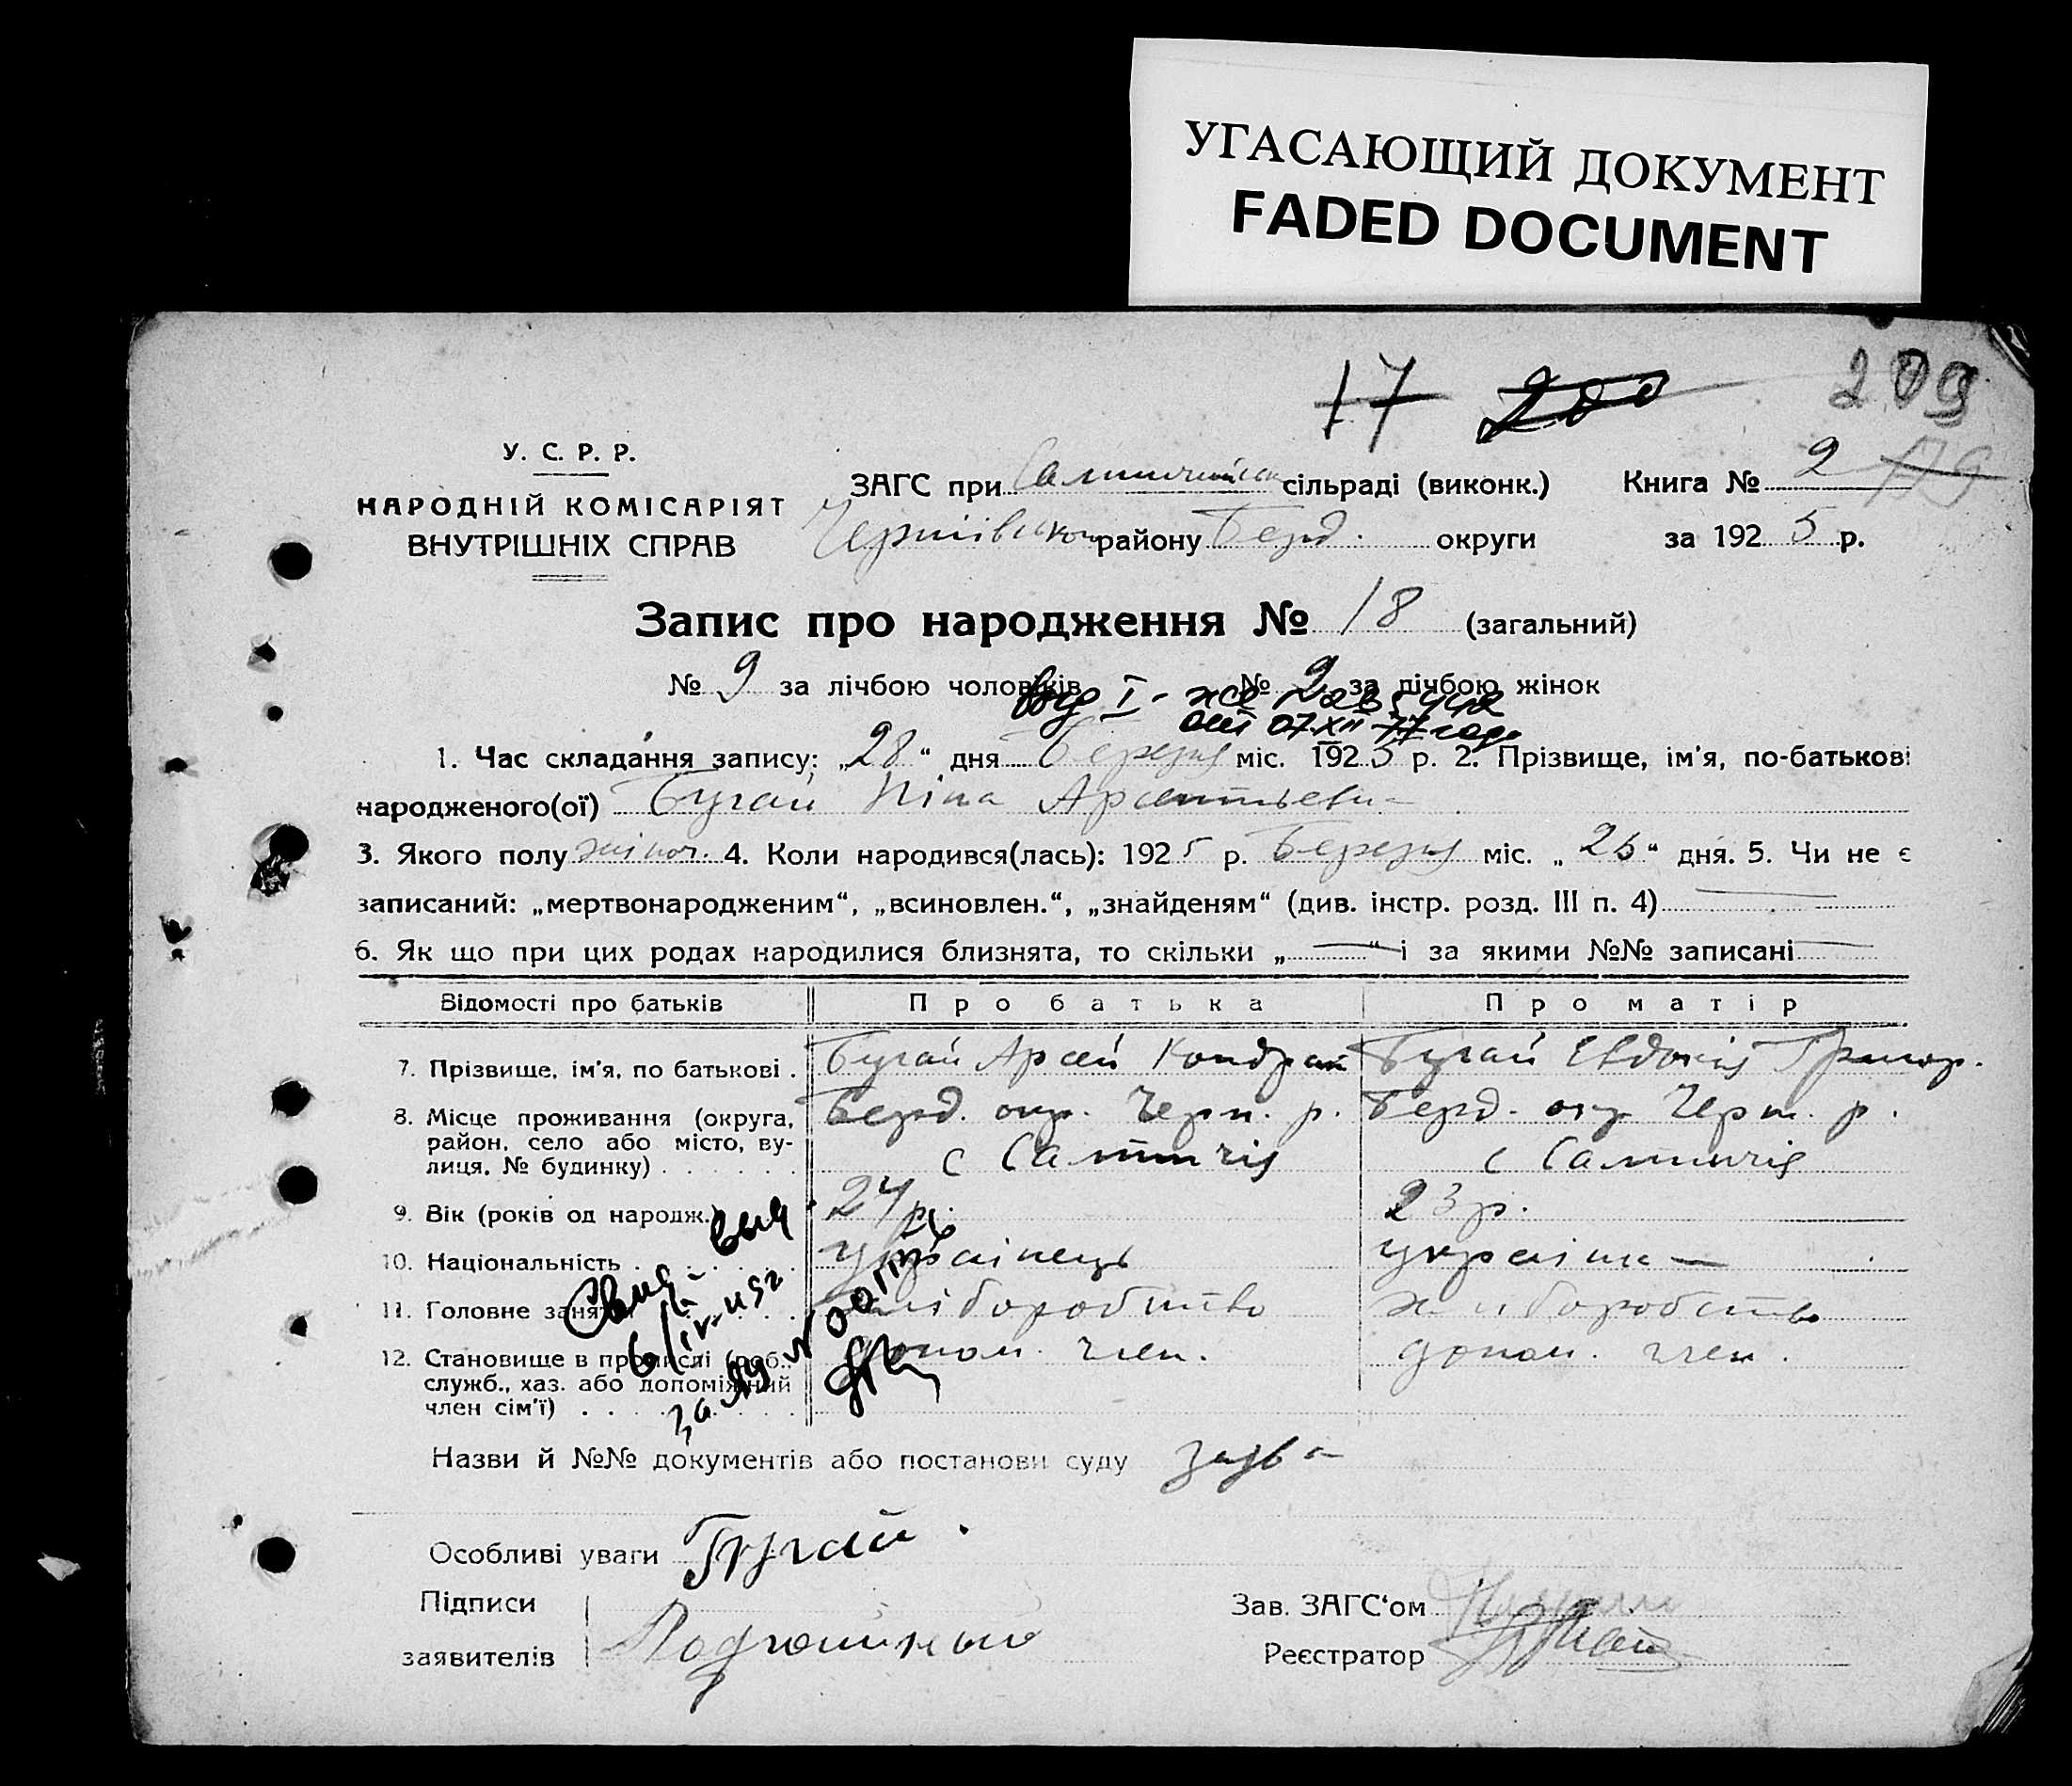 УГАСАЮЩИЙ ДОКУМЕНТ
FADED DOCUMENT
17 200 209
У. С. Р. Р.
НАРОДНІЙ КОМІСАРІЯТ
ВНУТРІШНІХ СПРАВ
ЗАГС при сільраді (виконк.) Книга № 2
району Берд. округи за 192 5 р.
Запис про народження № 18 (загальний)
№ 9 за лічбою чоловіків № 9 за лічбою жінок
1. Час складання запису: „28“ дня Березня міс. 192 5 р. 2. Прізвище, ім'я, по-батькові
народженого(ої) Бугай Ніна
3. Якого полу жіноч. 4. Коли народився(лась): 192 5 р. Березня міс. „ “ дня. 5. Чи не є
записаний: „мертвонародженим“, „всиновлен.“, „знайденям“ (див. інстр. розд. III п. 4)
6. Як що при цих родах народилися близнята, то скільки „ — “ і за якими №№ записані —
Відомості про батьків Про батька Про матір
7. Прізвище, ім'я, по батькові . Бугай Арсей Кондрат Бугай Евдокія Григор.
8. Місце проживання (округа, Берд. окр. Черн. р. Берд. окр Черн. р.
район, село або місто, ву-
лиця, № будинку) . . . . . . с Салтичія с Салтичія
9. Вік (років од народж.) 24 р. 23 р.
10. Національність . . . . . . українець українка
11. Головне заняття . . . . хліборобство хліборобство
12. Становище в промислі (роб., допом. член. допом. член.
служб., хаз. або допоміжний
член сім'ї) . . . . . . . .
Назви й №№ документів або постанови суду заява
Особливі уваги Бугай
Підписи Зав. ЗАГС‘ом
заявителів Реєстратор